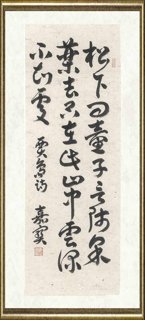 松下問童子言師采
藥去只在此山中雲深
不知處 賈島詩 嘉